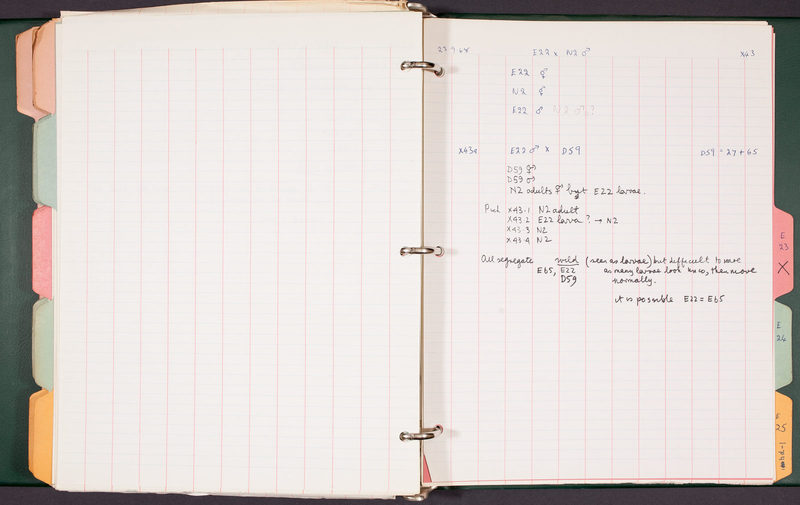 E22 x N2 ♂
X43
E22 ♀
N2 ♀
E22 ♂ N2 ♂ ?
X43a E22 ♂ x D59 D59 = 27 + 65
D59
D59 ♂
N2 adults but E22 larvae.
Pick X43.1 N2 adult
X43.2 E22 larva ? → N2
X43.3 N2
X43.4 N2
All segregate wild (seen as larvae) but difficult to
E65, E22 as many larvae look unco, then move
D59 normally.
it is possible E22 = E65
E
23
X
E
24
25